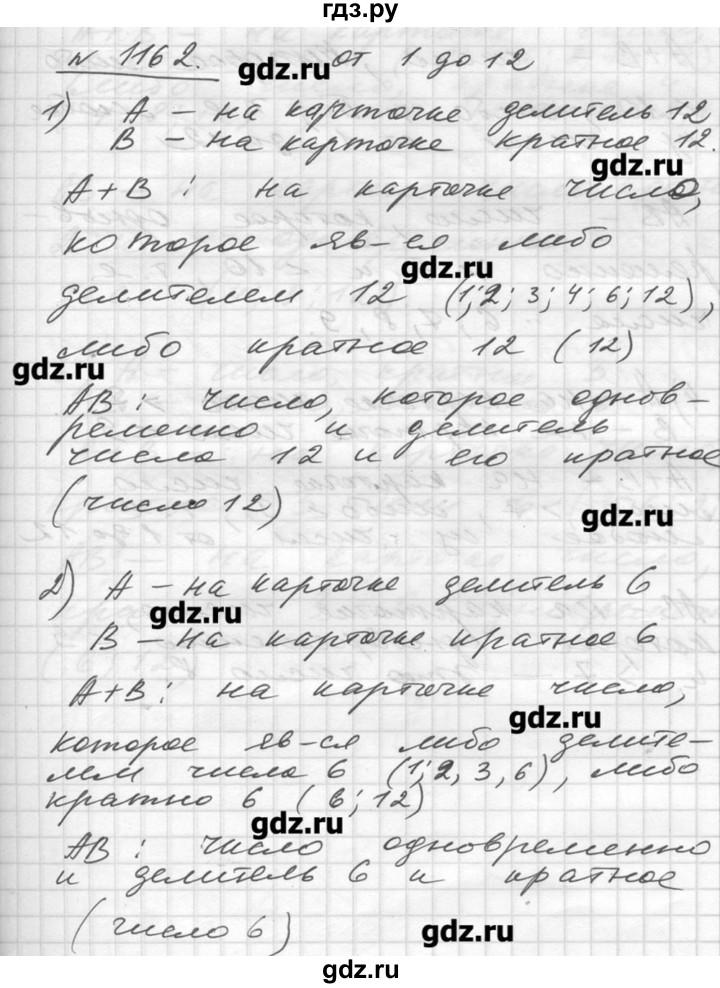 гдз.ру
№ 1162. от 1 до 12
gdz.ru
1) А – на карточке делитель 12
В – на карточке кратное 12.
gdz.ru
А+В : на карточке число,
которое яв-ся либо
gdz.ru
делителем 12 (1; 2; 3; 4; 6; 12),
либо кратное 12 (12)
gdz.ru
АВ : число, которое однов-
ременно и делитель
числа 12 и его кратное
(число 12)
gdz.ru
2) А – на карточке делитель 6
gdz.ru
В – на карточке кратное 6
А+В : на карточке число,
gdz.ru
которое яв-ся либо делите-
лем числа 6 (1; 2, 3, 6), либо
кратно 6 (6; 12)
gdz.ru
АВ : число одновременно
и делитель 6 и кратное
(число 6)
gdz.ru
gdz.ru